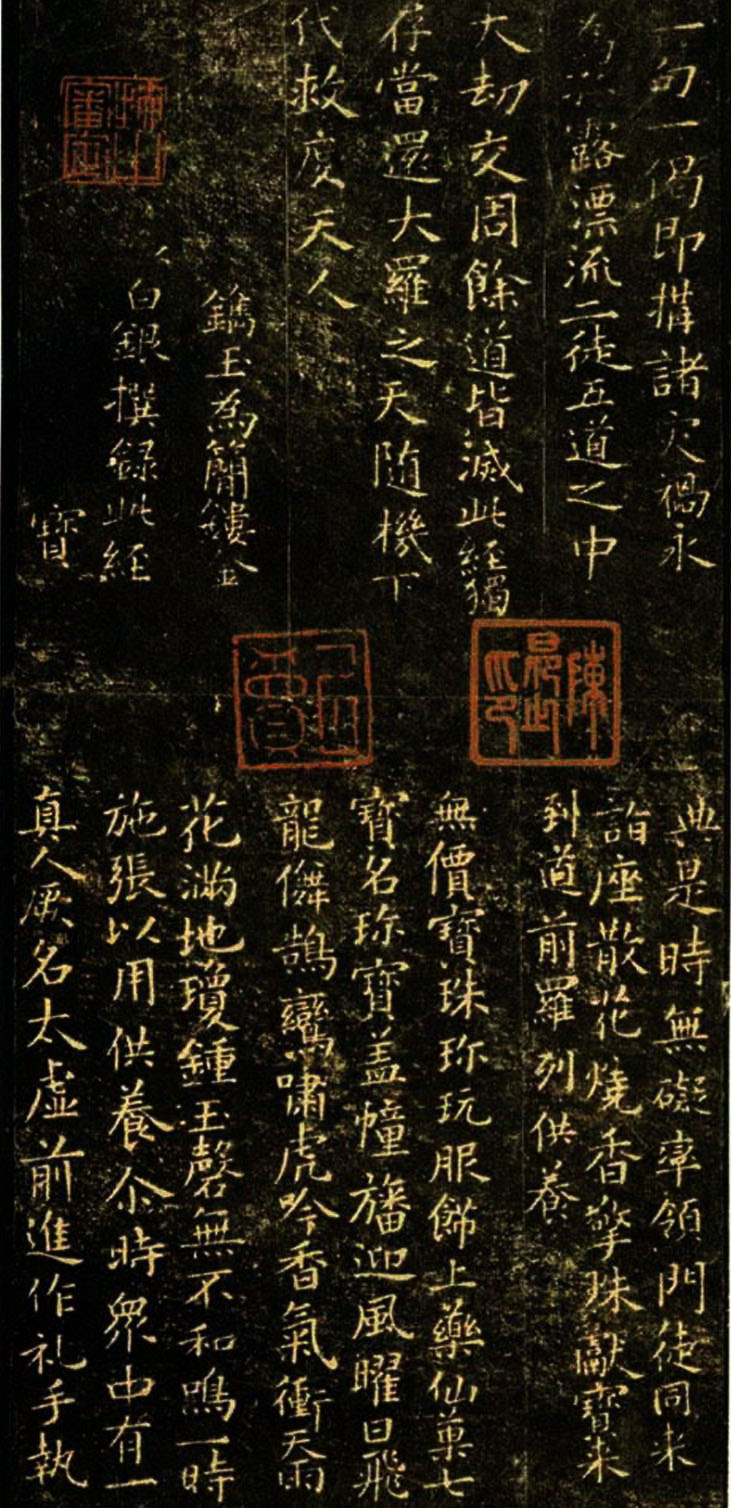 一句一偈即搆諸灾禍永
露漂流二徒五道之中
大劫交周餘道皆滅此経獨
存當還大羅之天随機下
代救度天人
鐫玉為簡鏤金
白銀撰録此経
寶
典是時無礙率領門徒同来
詣座散花燒香擎珠獻寶来
到道前羅列供養
無價寶珠珎玩服飾上藥仙菓七
寶名珎寶盖幢旛迎風曜日飛
龍儛鵠鸞嘯虎吟香氣衝天雨
花滿地瓊鍾玉磬無不和鳴一時
施張以用供養尒時眾中有一
真人厥名太虚前進作礼手執